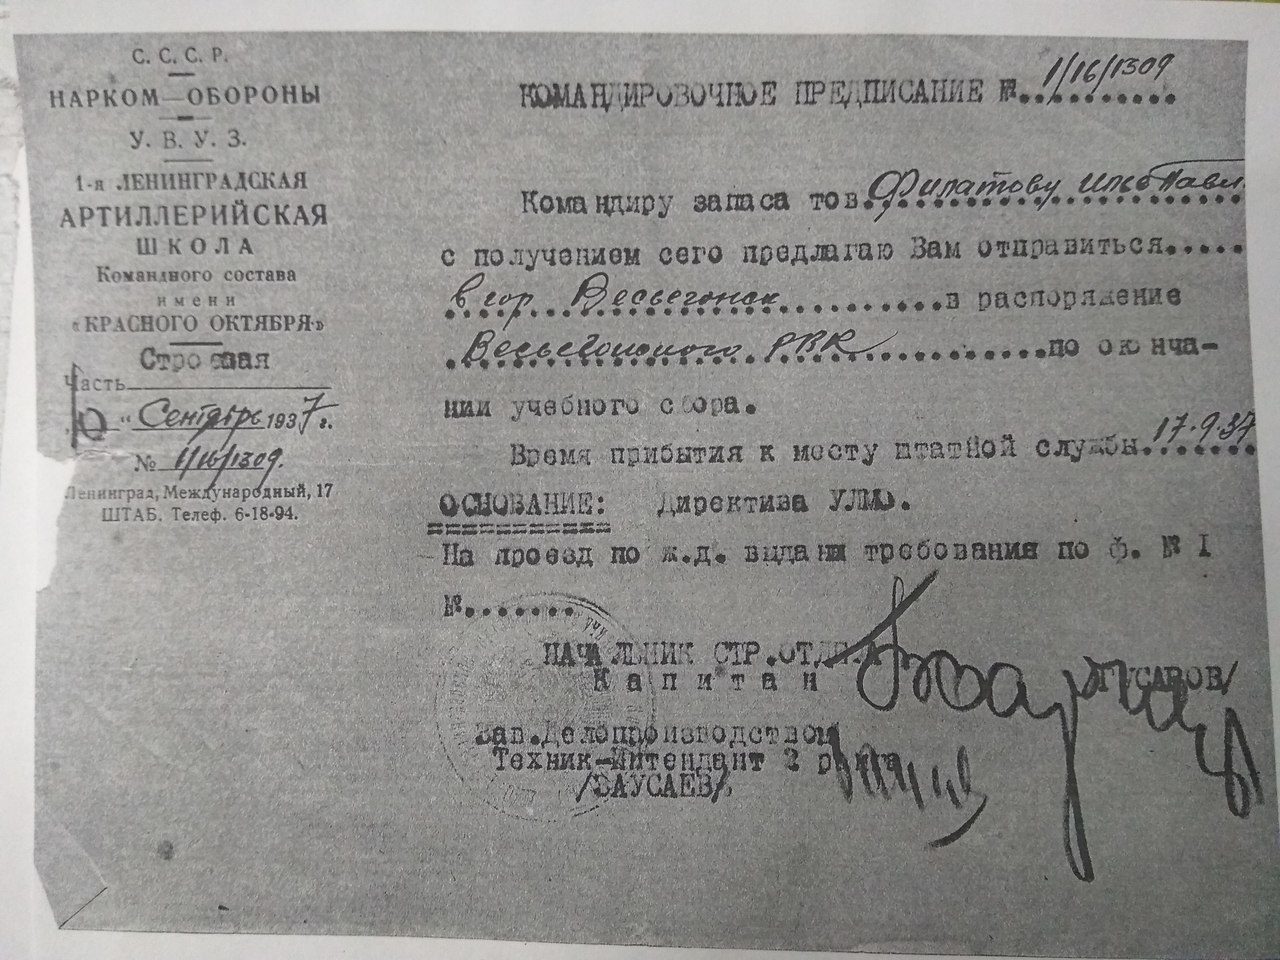 С. С. С. Р.
НАРКОМ—ОБОРОНЫ
У. В. У. З.
1-я ЛЕНИНГРАДСКАЯ
АРТИЛЛЕРИЙСКАЯ
ШКОЛА
Командного состава
имени
«КРАСНОГО ОКТЯБРЯ»
Строевая
Часть
10 " Сентябрь 1937 г.
№ 1/16/1309.
Ленинград, Международный, 17
ШТАБ. Телеф. 6-18-94.
КОМАНДИРОВОЧНОЕ ПРЕДПИСАНИЕ №. 1/16/1309
Командиру запаса тов. Филатову Илье Павл.
с получением сего предлагаю Вам отправиться.....
в гор Весьегонск..........в распоряжение
Весьегонского РВК..........по оконча-
нии учебного сбора.
Время прибытия к месту штатной службы. 17.9.37
ОСНОВАНИЕ: Директива УЛМО.
На проезд по ж.д. выданы требования по ф. № I
№.......
НАЧАЛЬНИК СТР.ОТДЕЛА
Капитан /ГУСАРОВ/
Зав.Делопроизводством
Техник-Интендант 2 ранга
/БАУСАЕВ/